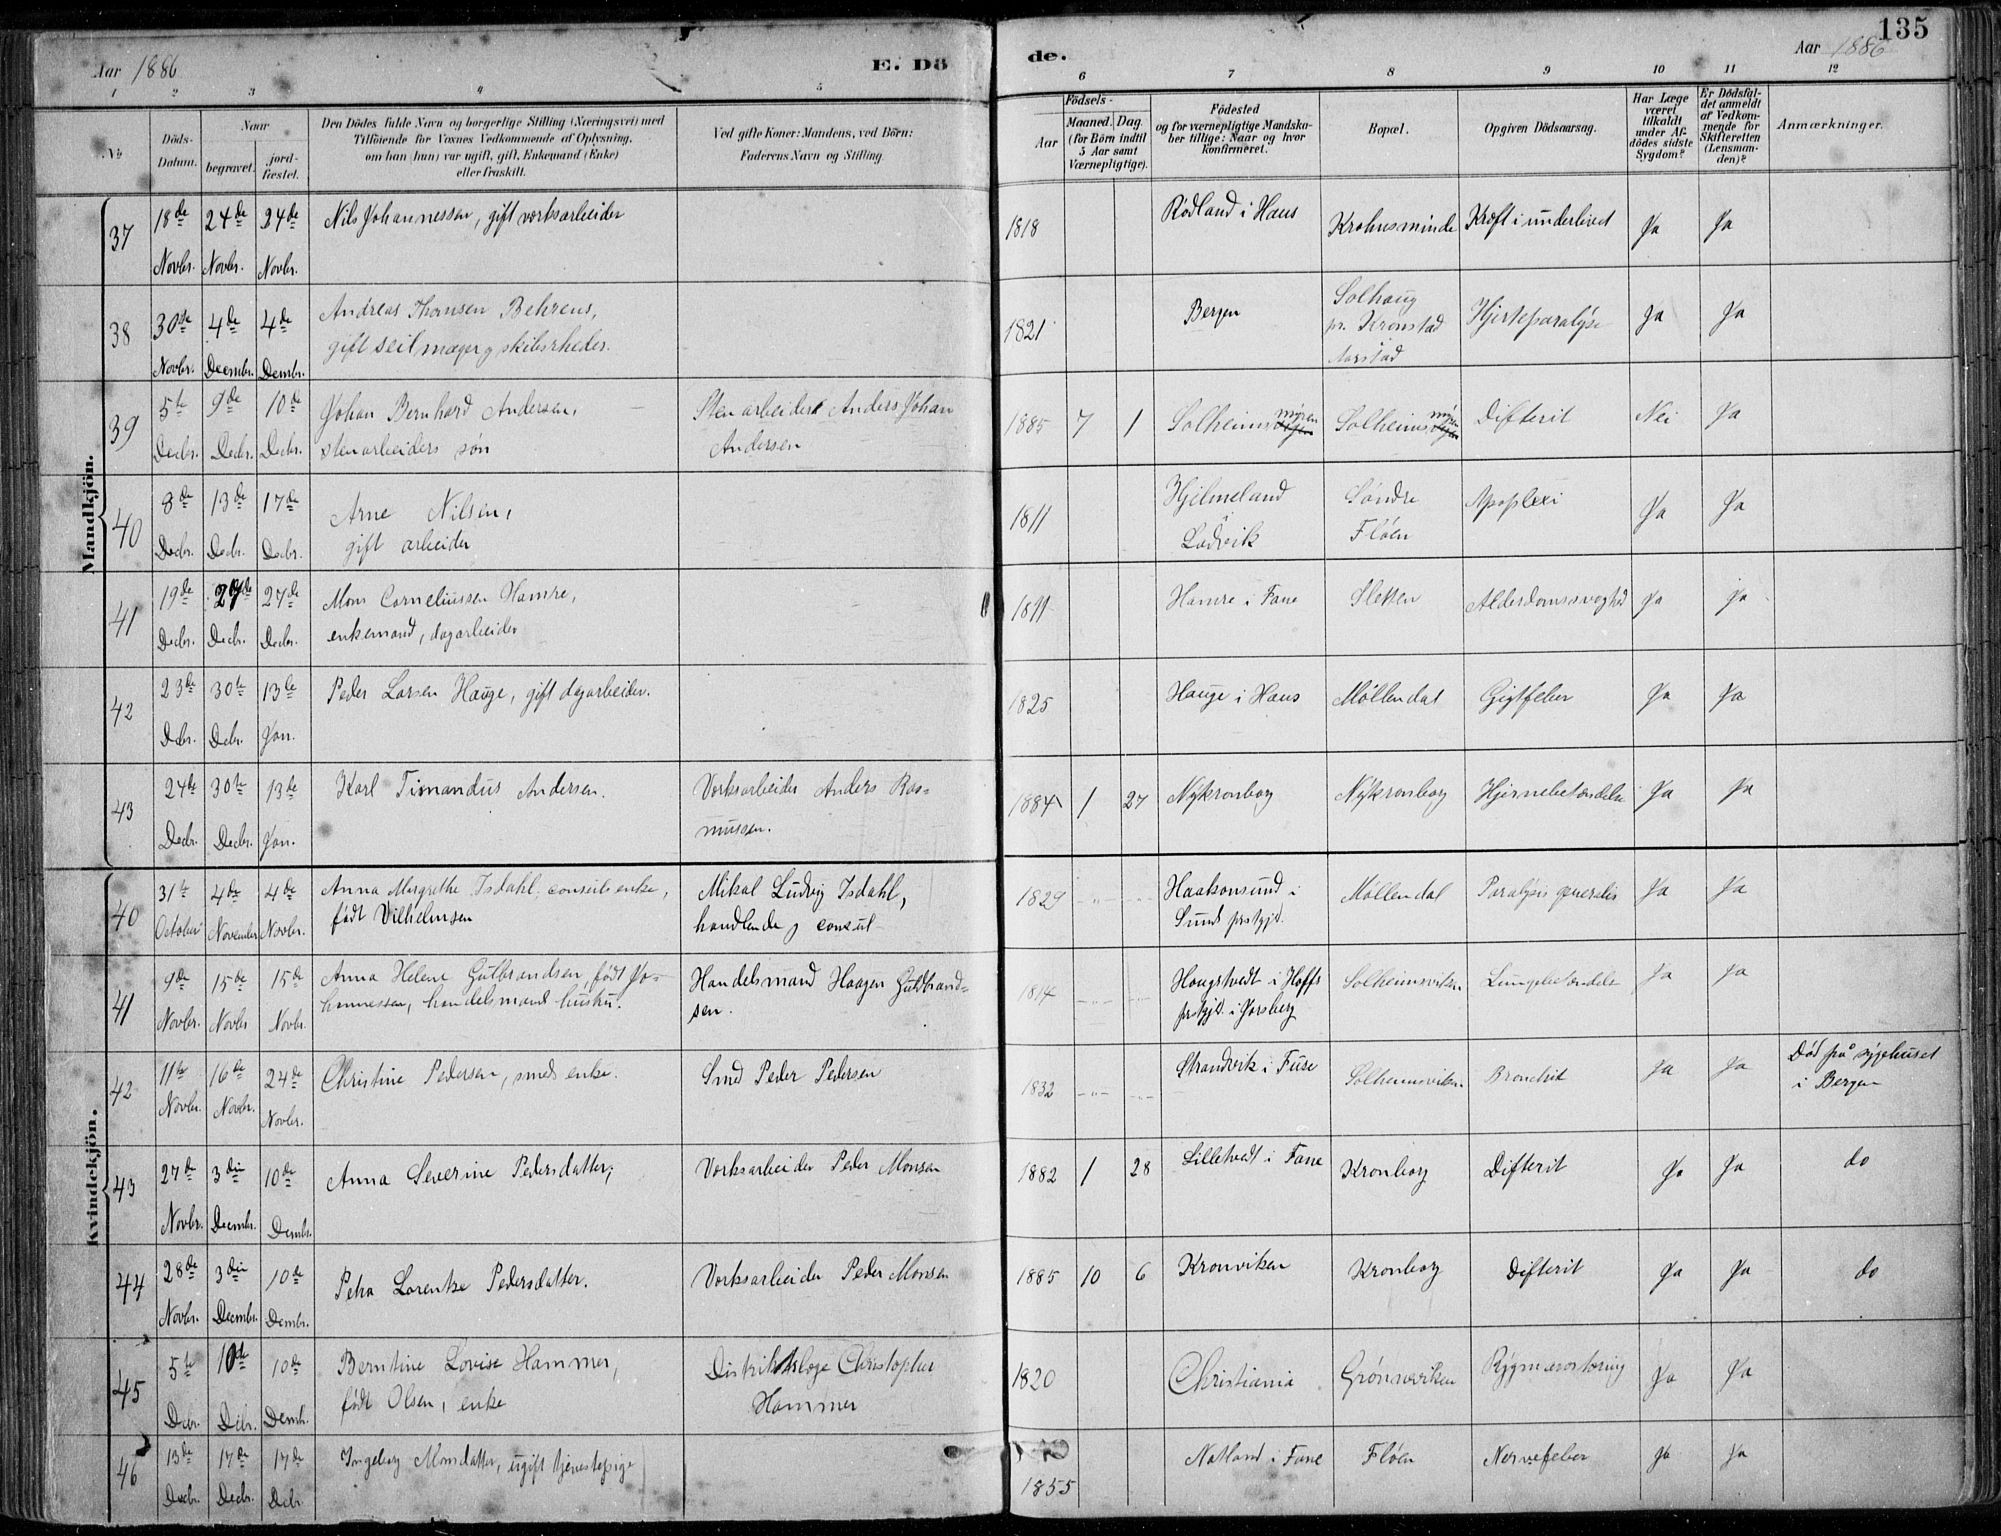 135
Aar 1886
E. Dö
de.
Aar 1886
1 2 3 4 5 6 7 8 9 10 11 12
No
Döds-Datum.
Naar
begravet.
jord-fæstet.
Den Dödes fulde Navn og borgerlige Stilling (Næringsvei) med
Tilföiende for Voxnes Vedkommende af Oplysning,
om han (hun) var ugift, gift, Enkemand (Enke)
eller fraskilt.
Ved gifte Koner: Mandens, ved Börn:
Faderens Navn og Stilling.
Födsels-
Aar
Maaned. Dag.
(for Börn indtil
5 Aar samt
Værnepligtige).
Födested
og for værnepligtige Mandska-
ber tillige: Naar og hvor
konfirmeret.
Bopæl.
Opgiven Dödsaarsag.
Har Læge
været
tilkaldt
under Af-
dödes sidste
Sygdom?
Er Dödsfal-
det anmeldt
af Vedkom-
mende for
Skifteretten
(Lensman-
den)?
Anmærkninger.
Mandkjön.
37 18de Novbr. 24de Novbr. 24de Novbr. Nils Johannessen, gift verksarbeider 1818 Rødland i Haus Krohnsminde Kræft i underlivet Ja Ja
38 30te Novbr. 4de Decembr. 4de Dembr. Andreas Thomsen Behrens,
gift seilmager og skibsrheder. 1821 Bergen Solhaug
pr. Kronstad
Aarstad Hjerteparalyse Ja Ja
39 5te Decbr. 9de Decbr. 10de Decbr. Johan Bernhard Andersen,
stenarbeiders søn Stenarbeider Anders Johan
Andersen 1885 7 1 Solheimsmyren Solheimsmyren Difterit Nei Ja
40 8de Decbr. 13de Decbr. 17de Decbr. Arne Nilsen,
gift arbeider 1811 Hjelmeland
Ladvik Søndre
Fløen Apoplexi Ja Ja
41 19de Decbr. 27de Decbr. 27de Decbr. Mons Corneliussen Hamre,
enkemand, dagarbeider 1811 Hamre i Fane Sletten Alderdomssvaghed Ja Ja
42 23de Dcbr. 30te Dcbr. 13de Jan. Peder Larsen Hauge, gift dagarbeider. 1825 Hauge i Haus Møllendal Gigtfeber Ja Ja
43 24de Decbr. 30te Decbr. 13de Jan. Karl Timandus Andersen. Verksarbeider Anders Ras-
mussen. 1884 1 27 Nykronborg Nykronborg Hjernebetændelse Ja Ja
Kvindekjön.
40 31te October 4de November 4de Novbr. Anna Margrethe Isdahl, consuls enke,
født Vilhelmsen Mikal Ludvig Isdahl,
handlende og consul 1829 Haakonsund i
Sund prstgjd. Møllendal Paralysis generalis Ja Ja
41 9de Novbr. 15de Novbr 15de Novbr. Anna Helene Gutbrandsen, født Jo-
hannessen, handelsmands hustru. Handelsmand Haagen Guldbrand-
sen. 1814 Haugstvedt i Hoffs
prstgjd. i Jarsberg Solheimsviken Lungebetændelse Ja Ja
42 11te Novbr. 16de Novbr. 24de Novbr. Christine Pedersen, smeds enke. Smed Peder Pedersen 1832 Strandvik i Fuse Solheimsviken Bronchit Ja Ja Død på sygehuset
i Bergen
43 27de Novbr. 3die Decmbr. 10de Dembr. Anna Severine Pedersdatter, Verksarbeider Peder Monsen 1882 1 28 Lilletvedt i Fane Kronborg Difterit Ja Ja do
44 28de Novbr. 3die Decmbr. 10de Dembr. Petra Lorentse Pedersdatter. Verksarbeider Peder Monsen 1885 10 6 Kronviken Kronborg Difterit Ja Ja do
45 5te Dcbr. 10de Dcbr. 10de Dembr. Berntine Lovise Hammer,
født Olsen, enke Distriktslæge Christopher
Hammer 1820 Christiania Grønneviken Rygmarvstæring Ja Ja
46 13de Decbr. 17de Decbr. 17de Dcbr. Ingeborg Monsdatter, ugift tjenestepige 1855 Natland i Fane Fløen Nervefeber Ja Ja